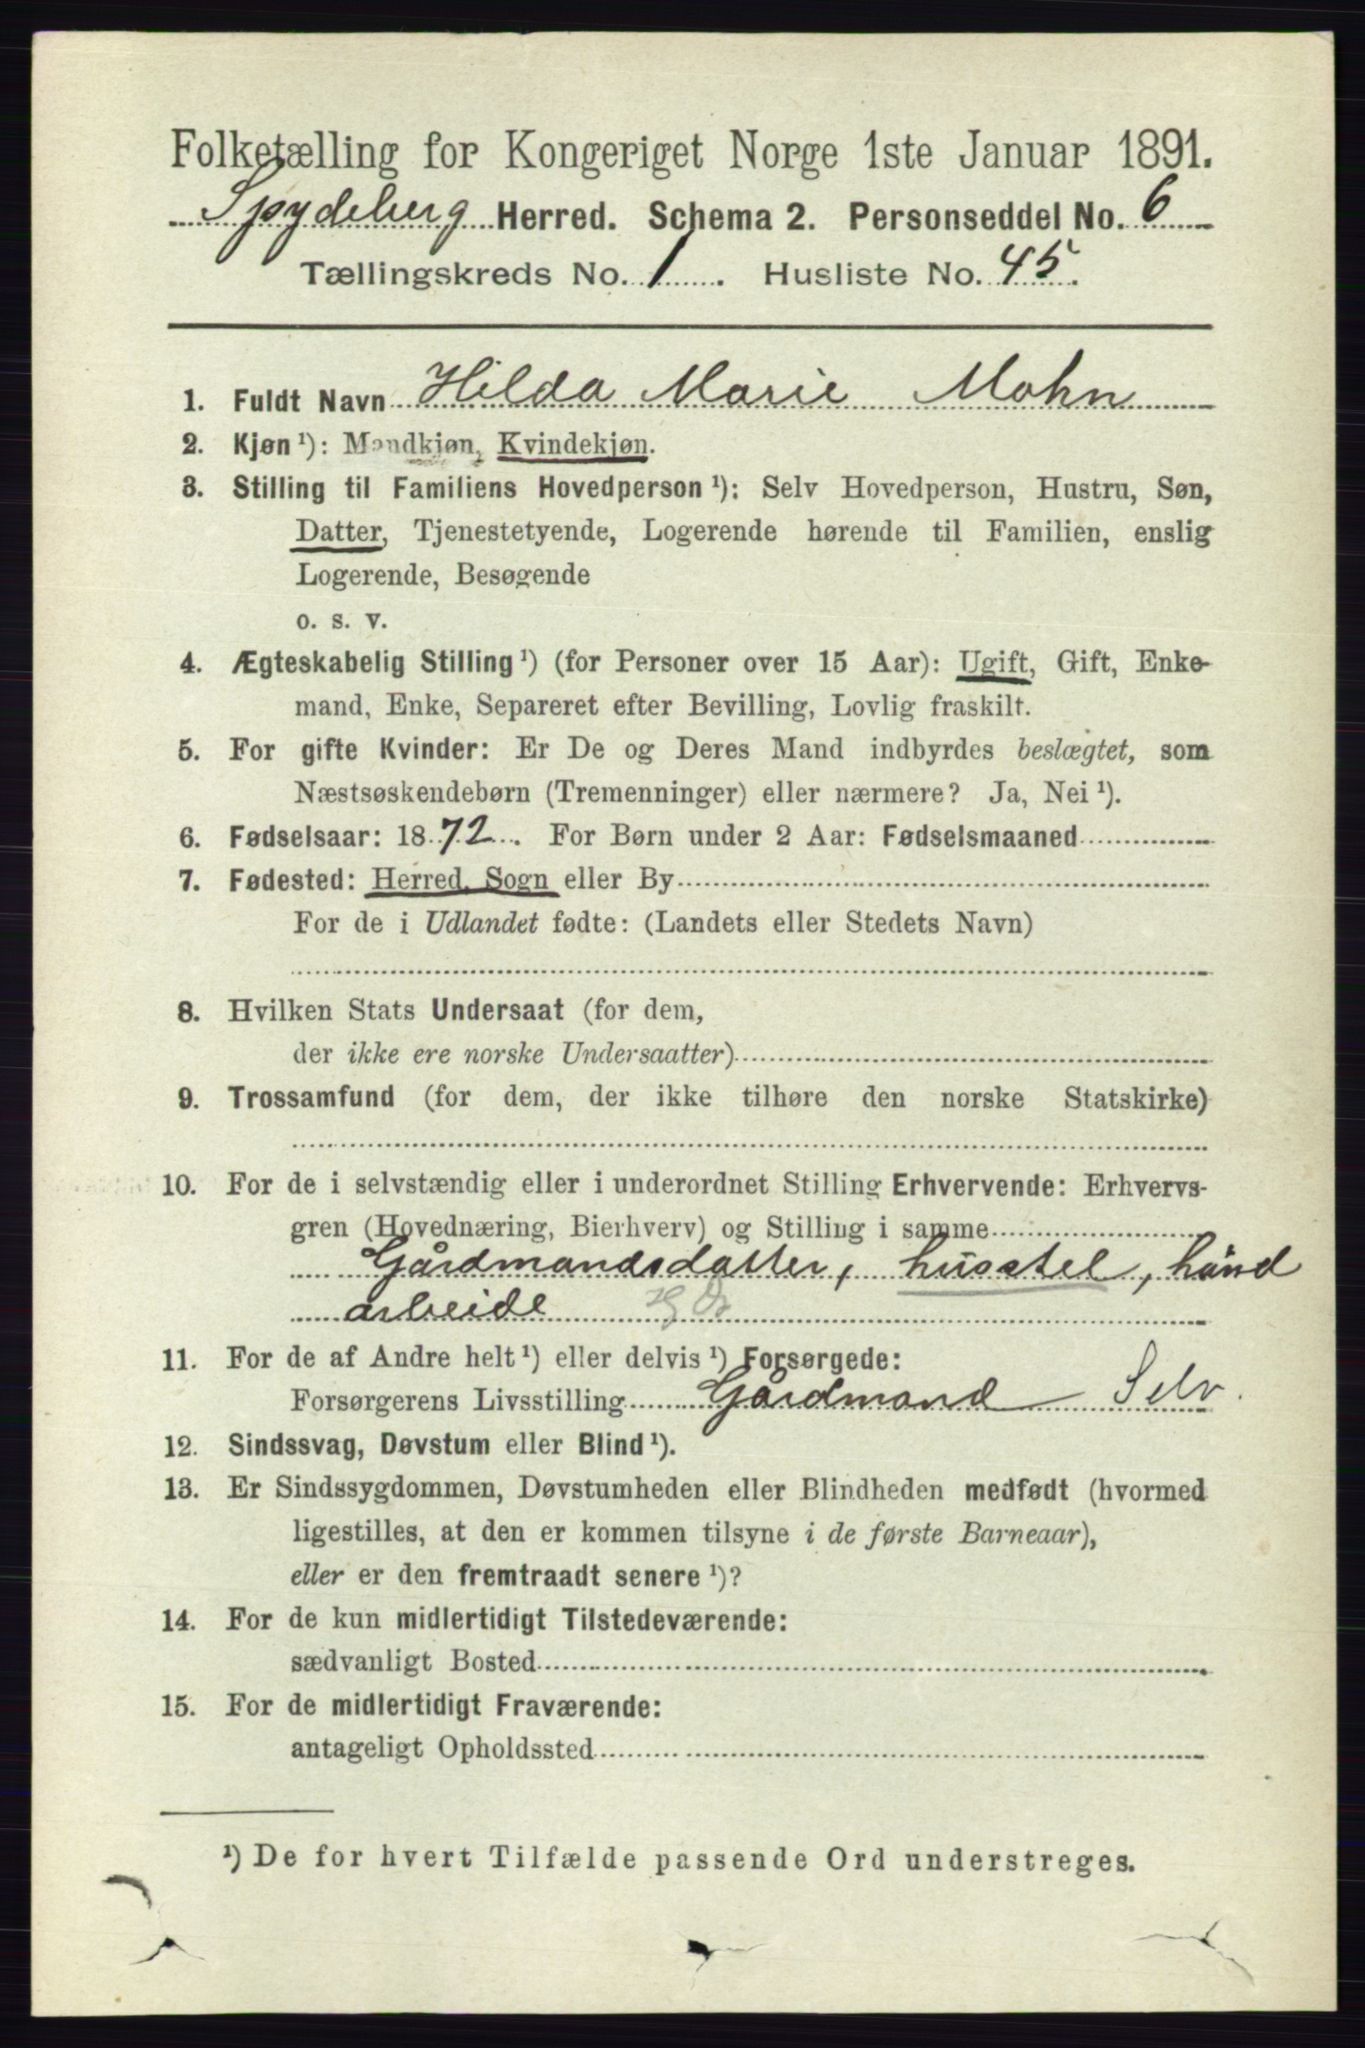 Folketælling for Kongeriget Norge 1ste Januar 1891.
Spydeberg Herred. Schema 2. Personseddel No. 6
Tællingskreds No. 1. Husliste No. 45.
1. Fuldt Navn Hilda Marie Mohn
2. Kjøn ¹): Mandkjøn, Kvindekjøn.
3. Stilling til Familiens Hovedperson ¹): Selv Hovedperson, Hustru, Søn,
Datter, Tjenestetyende, Logerende hørende til Familien, enslig
Logerende, Besøgende
o. s. v.
4. Ægteskabelig Stilling ¹) (for Personer over 15 Aar): Ugift, Gift, Enke-
mand, Enke, Separeret efter Bevilling, Lovlig fraskilt.
5. For gifte Kvinder: Er De og Deres Mand indbyrdes beslægtet, som
Næstsøskendebørn (Tremenninger) eller nærmere? Ja, Nei ¹).
6. Fødselsaar: 1872. For Børn under 2 Aar: Fødselsmaaned
7. Fødested: Herred, Sogn eller By
For de i Udlandet fødte: (Landets eller Stedets Navn)
8. Hvilken Stats Undersaat (for dem,
der ikke ere norske Undersaatter)
9. Trossamfund (for dem, der ikke tilhøre den norske Statskirke)
10. For de i selvstændig eller i underordnet Stilling Erhvervende: Erhvervs-
gren (Hovednæring, Bierhverv) og Stilling i samme
Gårdmandsdatter, husstel, hånd
arbeide
11. For de af Andre helt ¹) eller delvis ¹) Forsørgede:
Forsørgerens Livsstilling Gårdmand Selv.
12. Sindssvag, Døvstum eller Blind ¹).
13. Er Sindssygdommen, Døvstumheden eller Blindheden medfødt (hvormed
ligestilles, at den er kommen tilsyne i de første Barneaar),
eller er den fremtraadt senere ¹)?
14. For de kun midlertidigt Tilstedeværende:
sædvanligt Bosted
15. For de midlertidigt Fraværende:
antageligt Opholdssted
¹) De for hvert Tilfælde passende Ord understreges.